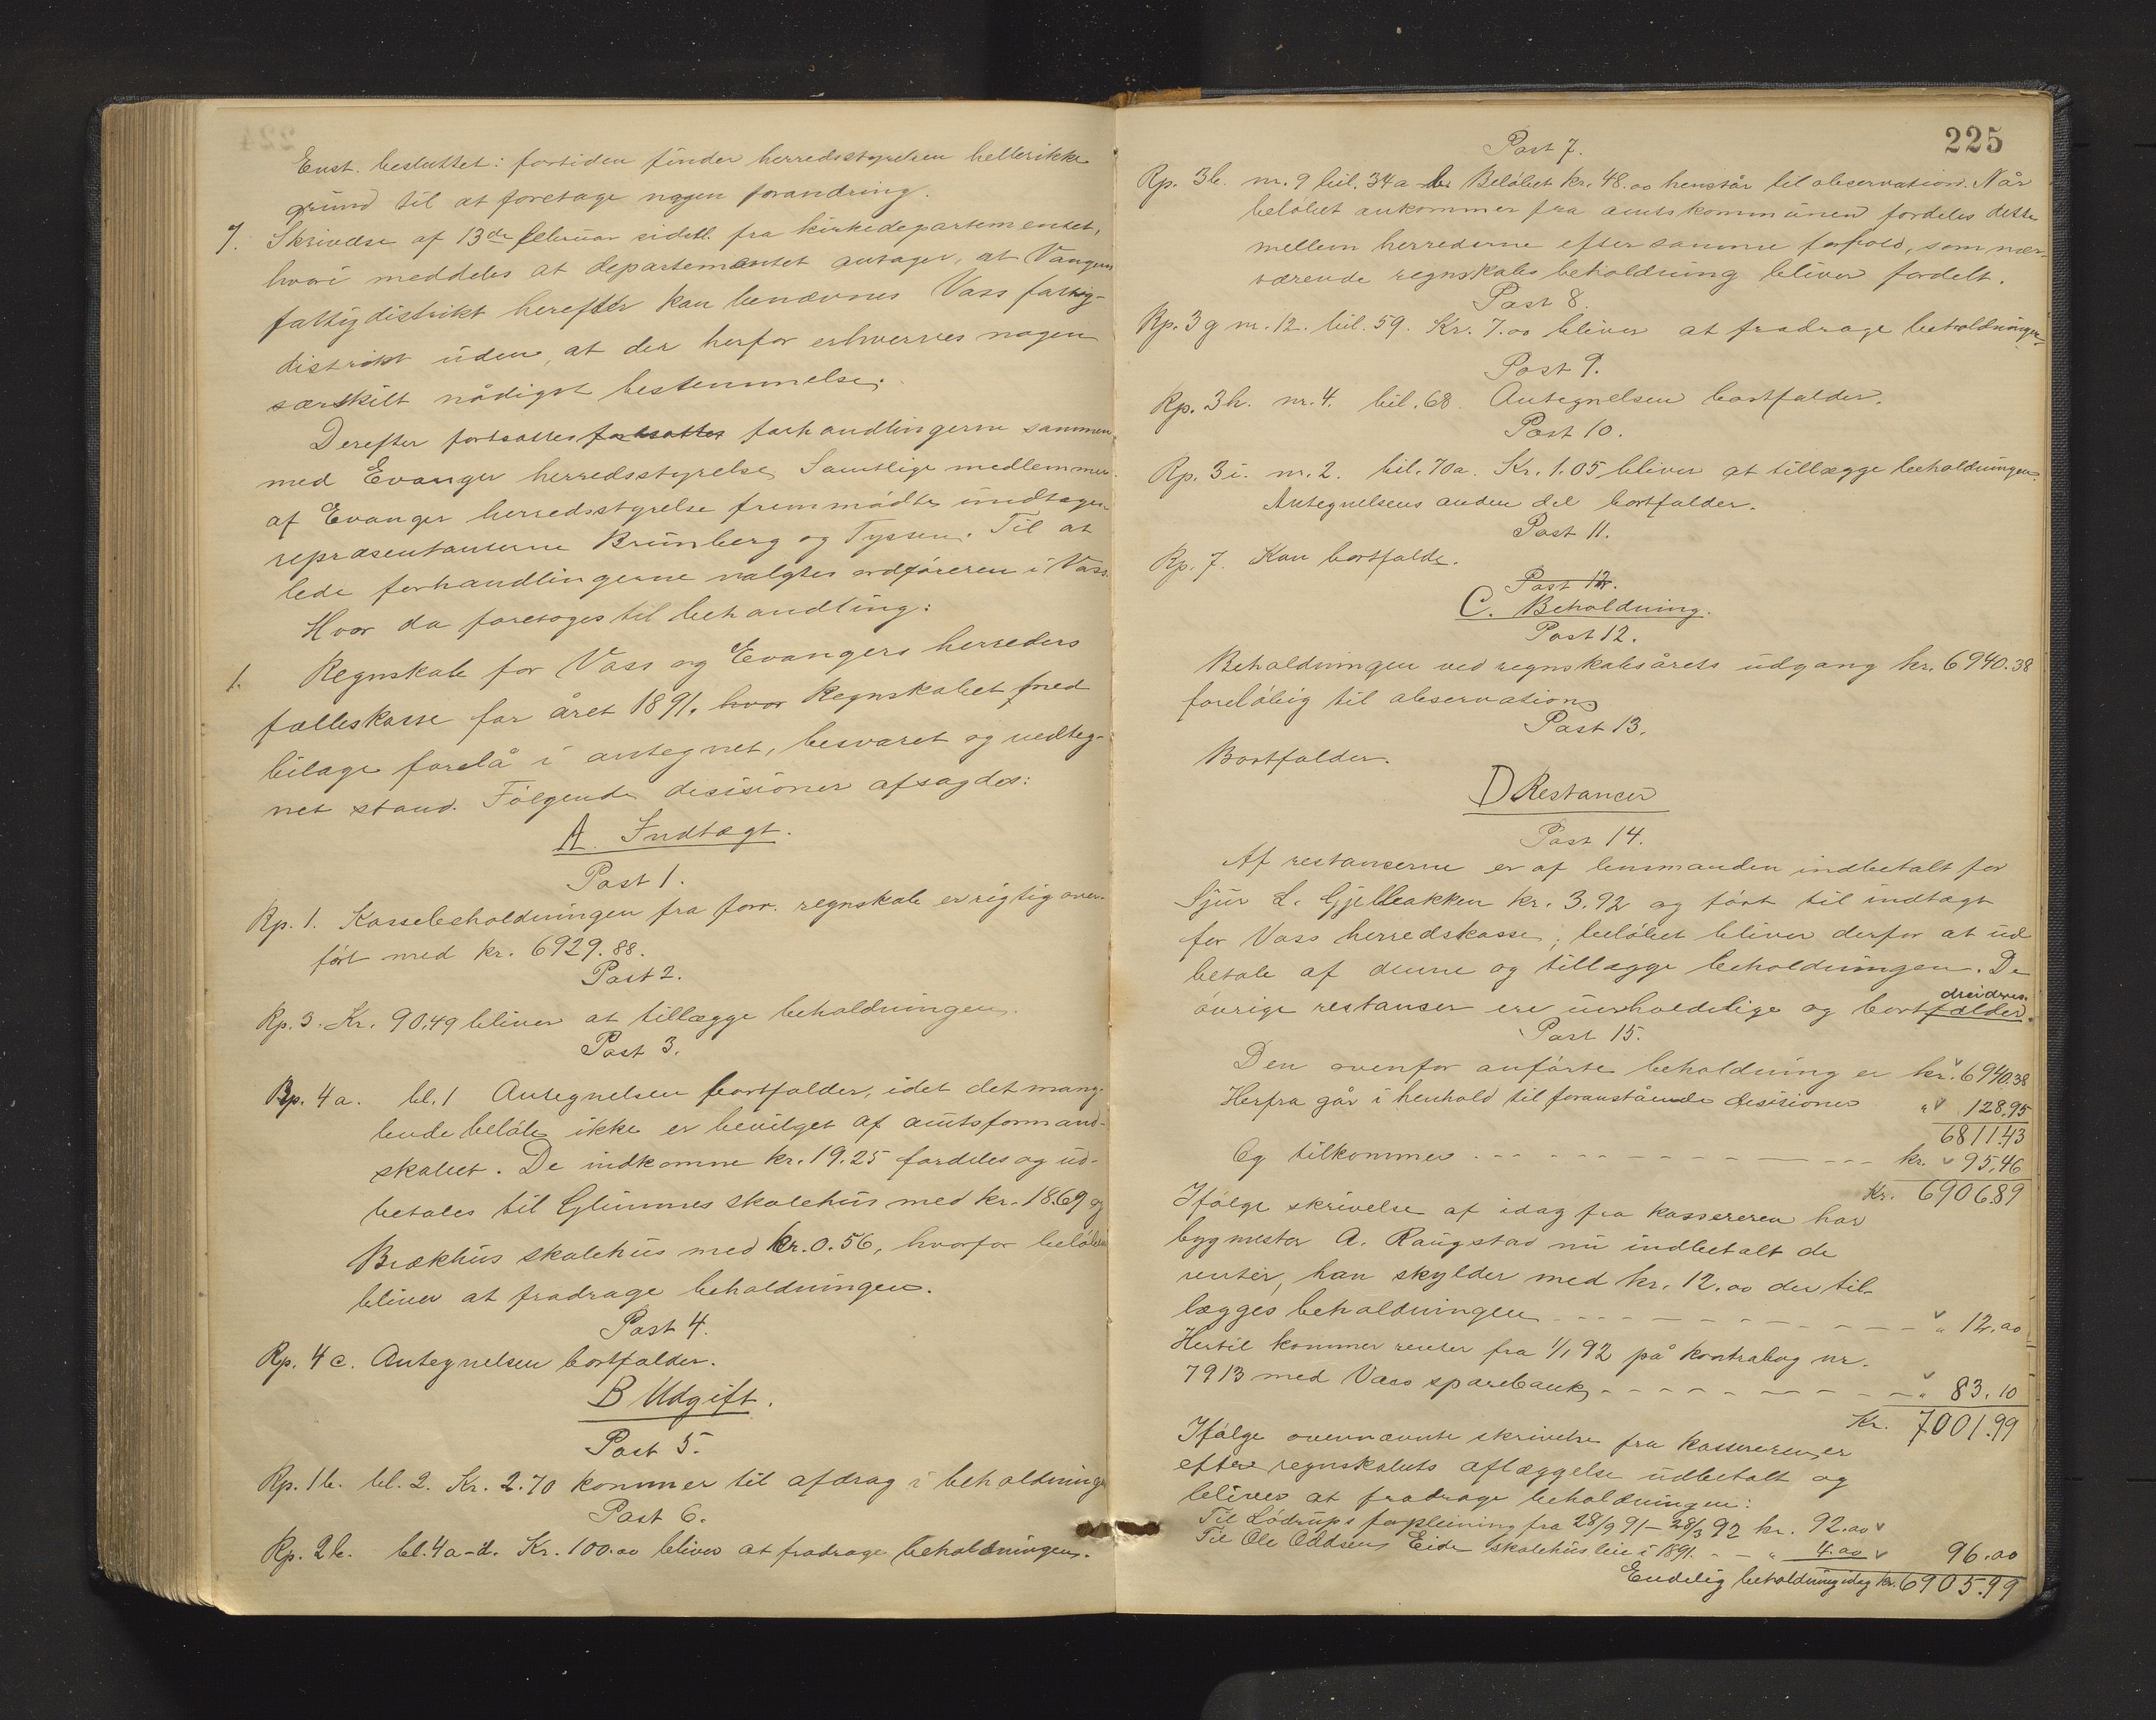 Enst. besluttet: fortiden finder herredsstyrelsen hellerikke
grund til at foretage nogen forandring.
7. Skrivelse af 13de februar sidstl. fra kirkedepartementet,
hvori meddeles at departementet antager, at Vangens
fattigdistrikt herefter kan benævnes Vass fattig-
distrikt uden, at der herfor erhverves nogen
særskilt nådigst bestemmelse.
Derefter fortsattes fortsattes forhandlingerne sammen
med Evanger herredsstyrelse. Samtlige medlemmer
af Evanger herredsstyrelse fremmødte undtagen
repræsentanterne Brunberg og Tyssen. Til at
lede forhandlingerne valgtes ordføreren i Vass.
Hvor da foretoges til behandling:
1. Regnskab for Vass og Evangers herreders
fælleskasse for året 1891. hvor Regnskabet med
bilage forelå i antegnet, besvaret og vedteg-
net stand. Følgende desisioner afsagdes:
A. Indtægt.
Post 1.
Rp. 1. Kassebeholdningen fra forr. regnskab er rigtig over-
ført med kr. 6929.88.
Post 2.
Rp. 3. Kr. 90,49 bliver at tillægge beholdningen.
Post 3.
Rp. 4a. bl. 1 Antegnelsen bortfalder, idet det mang-
lende beløb ikke er bevilget af amtsformand-
skabet. De indkomne kr. 19.25 fordeles og ud-
betales til Glimmes skolehus med kr. 18.69 og
Brækhus skolehus med kr. 0.56, hvorfor beløbene
bliver at fradrage beholdningen.
Post 4.
Rp. 4c. Antegnelsen bortfalder.
B Udgift.
Post 5.
Rp. 1b. bl. 2. Kr. 2.70 kommer til afdrag i beholdningen
Post 6.
Rp. 2b. bl. 4a-d. Kr. 100.00 bliver at fradrage beholdningen.
225
Post 7.
Rp. 3b. nr. 9 bil. 34a-b. Beløbet kr. 48.00 henstår til observation. Når
beløbet ankommer fra amtskommunen fordeles dette
mellem herrederne efter samme forhold, som nær-
værende regnskabs beholdning bliver fordelt.
Post 8.
Rp. 3g nr. 12. bil. 59. Kr. 7.00 bliver at fradrage beholdningen.
Post 9.
Rp. 3h. nr. 4. bil. 68. Antegnelsen bortfalder.
Post 10.
Rp. 3i. nr. 2. bil. 70a. Kr. 1.05 bliver at tillægge beholdningen.
Antegnelsens anden del bortfalder.
Post 11.
Rp. 7. Kan bortfalde.
Post 12.
C. Beholdning.
Post 12.
Beholdningen ved regnskabsårets udgang kr. 6940.38
foreløbig til observation.
Post 13.
Bortfalder.
D Restancer
Post 14.
Af restancerne er af lensmanden indbetalt for
Sjur L. Gjelleakken kr. 3.92 og ført til indtægt
for Vass herredskasse; beløbet bliver derfor at ud
betale af denne og tillægge beholdningen. De
øvrige restanser ere uerholdelige og bortfalder.
Post 15.
Den ovenfor anførte beholdning er kr. 6940.38
Herfra går i henhold til foranstående desisioner " 128.95
6811.43
Og tilkommer kr. 95,46
Kr. 6906.89
Ifølge skrivelse af idag fra kassereren har
bygmester A. Raugstad nu indbetalt de
renter, han skylder med kr. 12.00 der til-
lægges beholdningen " 12.00
Hertil kommer renter fra 1/1 92 på kontrabog nr.
7913 med Vass sparebank " 83.10
Kr. 7001.99
Ifølge ovennævnte skrivelse fra kassereren, er
efter regnskabets aflæggelse udbetalt og
bliver at fradrage beholdningen:
Til Lødrups forpleining fra 28/9 91 - 28/3 92 kr. 92.00
Til Ole Oddsen Eide skolehusleie i 1891. " 4.00 96.00
Endelig beholdning idag kr. 6905.99